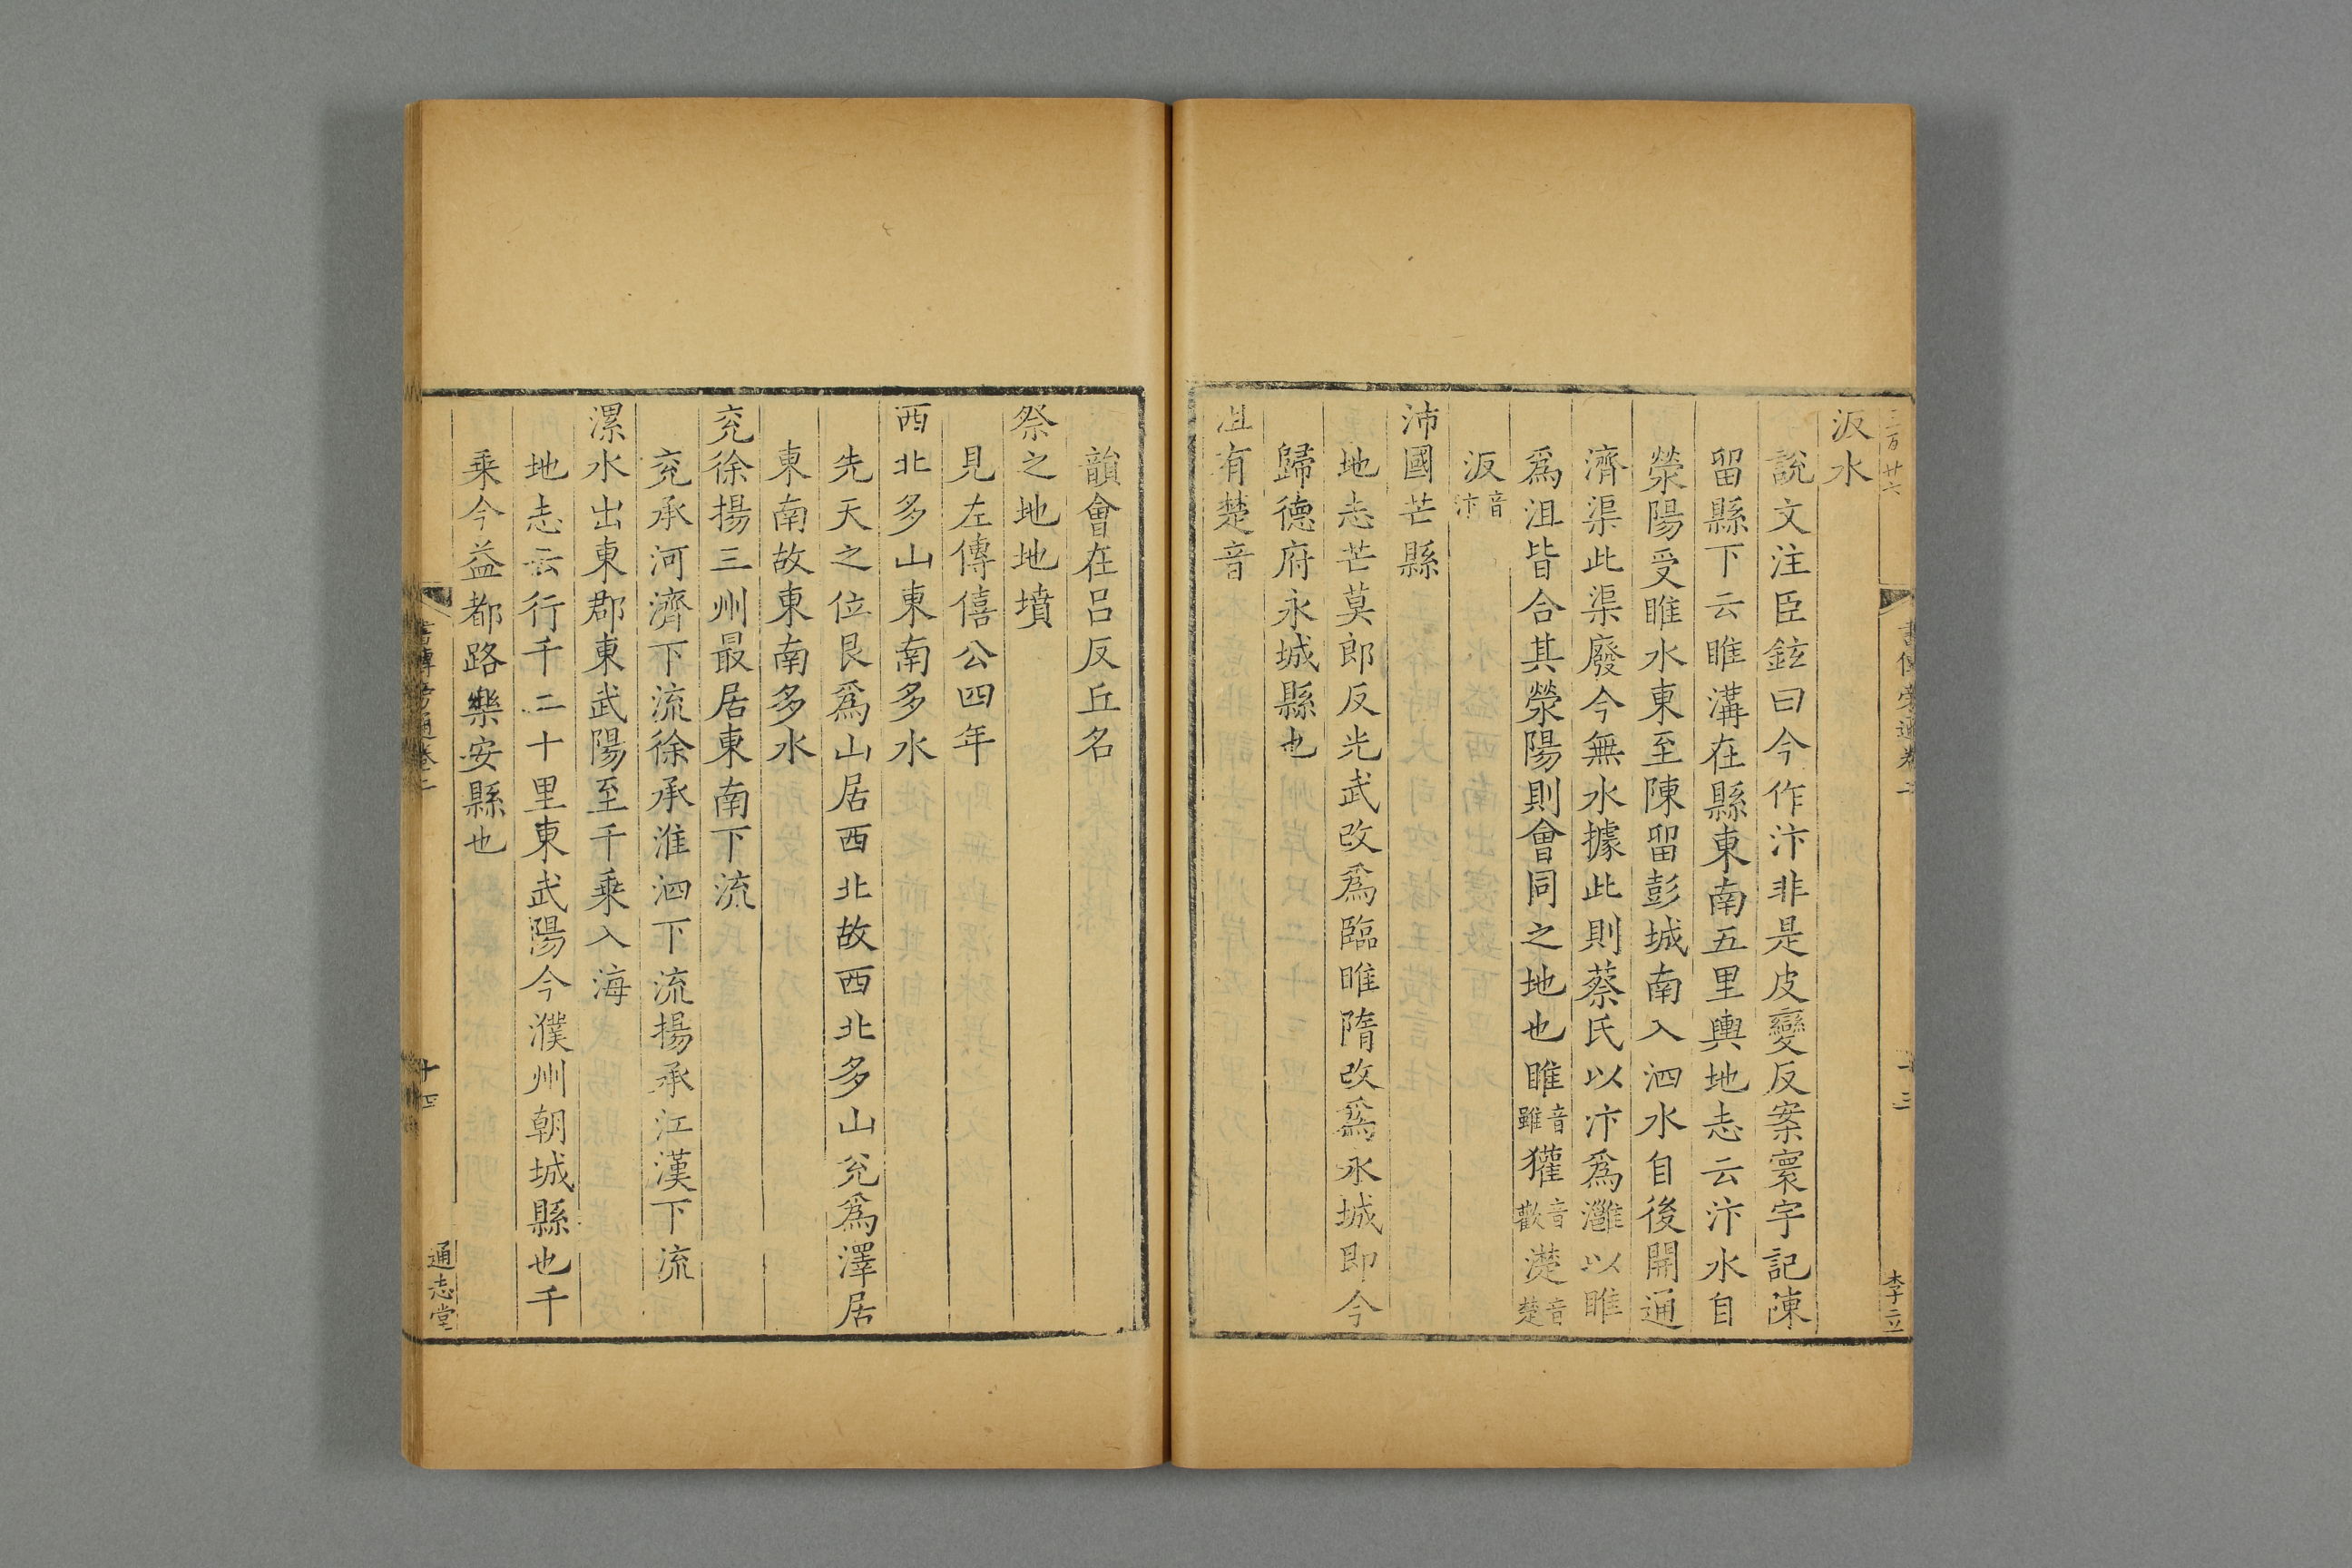 三百廿六
書傳旁通卷二
十三
李立
汳水
說文注臣鉉曰今作汴非是皮變反案寰宇記陳
留縣下云睢溝在縣東南五里輿地志云汴水自
滎陽受睢水東至陳留彭城南入泗水自後開通
濟渠此渠廢今無水據此則蔡氏以汴爲灉以睢
爲沮皆合其滎陽則會同之地也睢音雖獾音歡濋音楚
汳音汴
沛國芒縣
地志芒莫郎反光武改爲臨睢隋改爲永城即今
歸德府永城縣也
沮有楚音
韻會在呂反丘名
祭之地地墳
見左傳僖公四年
西北多山東南多水
先天之位艮爲山居西北故西北多山兊爲澤居
東南故東南多水
兖徐揚三州最居東南下流
兖承河濟下流徐承淮泗下流揚承江漢下流
漯水出東郡東武陽至千乘入海
地志云行千二十里東武陽今濮州朝城縣也千
乘今益都路樂安縣也
書傳旁通卷二
十四
通志堂